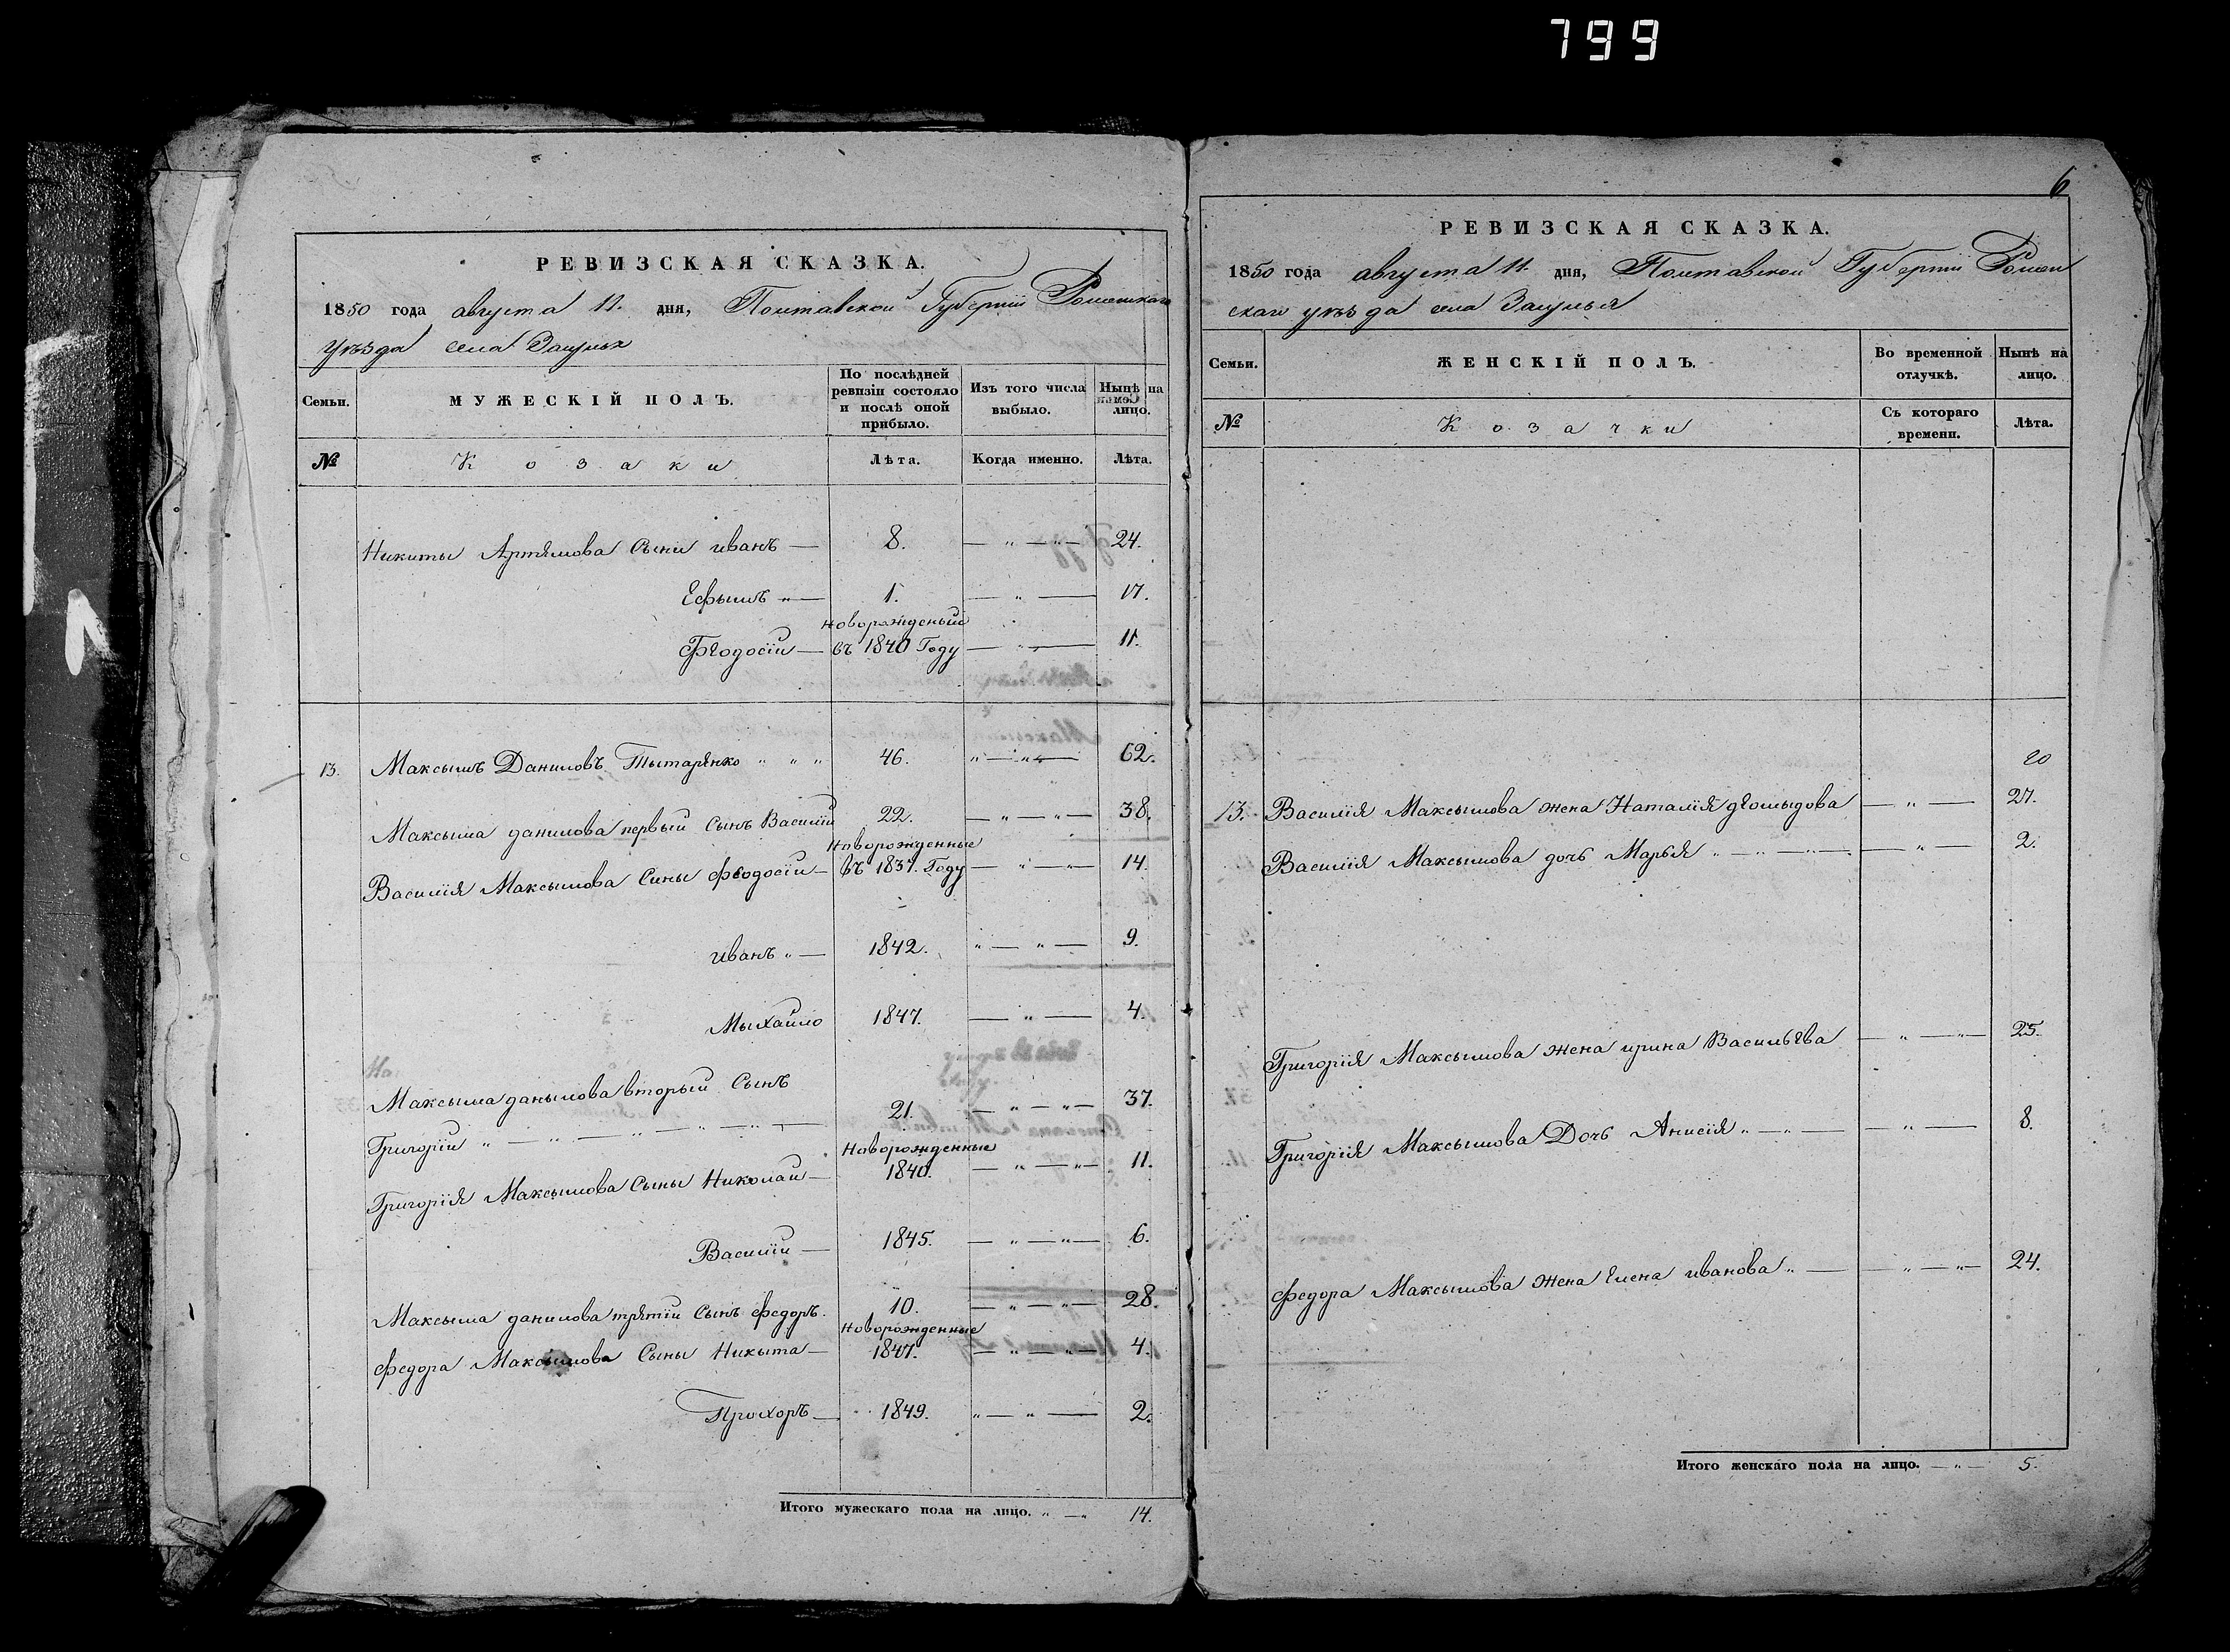 799
РЕВИЗСКАЯ СКАЗКА.
1850 года августа 11. дня, Полтавской Губернии Роменскаго
уѣзда села Засулья
Семьи. МУЖЕСКІЙ ПОЛЪ. По послѣдней ревизіи состояло и послѣ оной прибыло. Изъ того числа выбыло. Нынѣ на лицо.
№ Козаки Лѣта. Когда именно. Лѣта.
Никиты Артямова Сыни иванъ — 8. — „ — „ — 24.
Ефымъ „ — 1. — „ — 17.
новорожденый
Феодосій — въ 1840 Году — „ — 11.
13. Максымъ Даниловъ Тытарянко „ „ „ 46. „ — „ — 62.
Максыма данилова первый Сынъ Василій 22. — „ — „ — 38.
Новорожденные
Василія Максымова Сины Феодосій — въ 1837. Году — „ — „ — 14.
иванъ „ — 1842. „ — „ — 9.
Мыхайло 1847. — „ — 4.
Максыма данылова вторый Сынъ
Григорій „ — „ — „ — „ — „ — 21. — „ — „ — 37.
Новорожденные
Григорія Максымова Сыны Николай — 1840. — „ — „ — 11.
Василій — 1845. — „ — „ — 6.
Максыма данилова трятій Сынъ федоръ. 10. — „ — „ — 28.
Новорожденные
федора Максымова Сыны Никыта — 1847. — „ — „ — 4.
Прохоръ — 1849. „ — „ — 2.
Итого мужескаго пола на лицо. „ — „ 14.
6
РЕВИЗСКАЯ СКАЗКА.
1850 года августа 11. дня, Полтавской Губернии Ромен
скаго уѣзда села Засулья
Семьи. ЖЕНСКІЙ ПОЛЪ. Во временной отлучкѣ. Нынѣ на лицо.
№ Козачки Съ котораго времени. Лѣта.
20
13. Василія Максымова жена Наталія дѣомыдова — „ — 27.
Василія Максымова дочь Марья „ — „ — „ — — „ — 2.
Григорія Максымова жена ирина Васильева — „ — „ — 25.
Григорія Максымова Дочь Анисія „ — „ — — „ — 8.
федора Максымова жена Елена иванова „ — — „ — „ — 24.
Итого женскаго пола на лицо. — „ — 5.